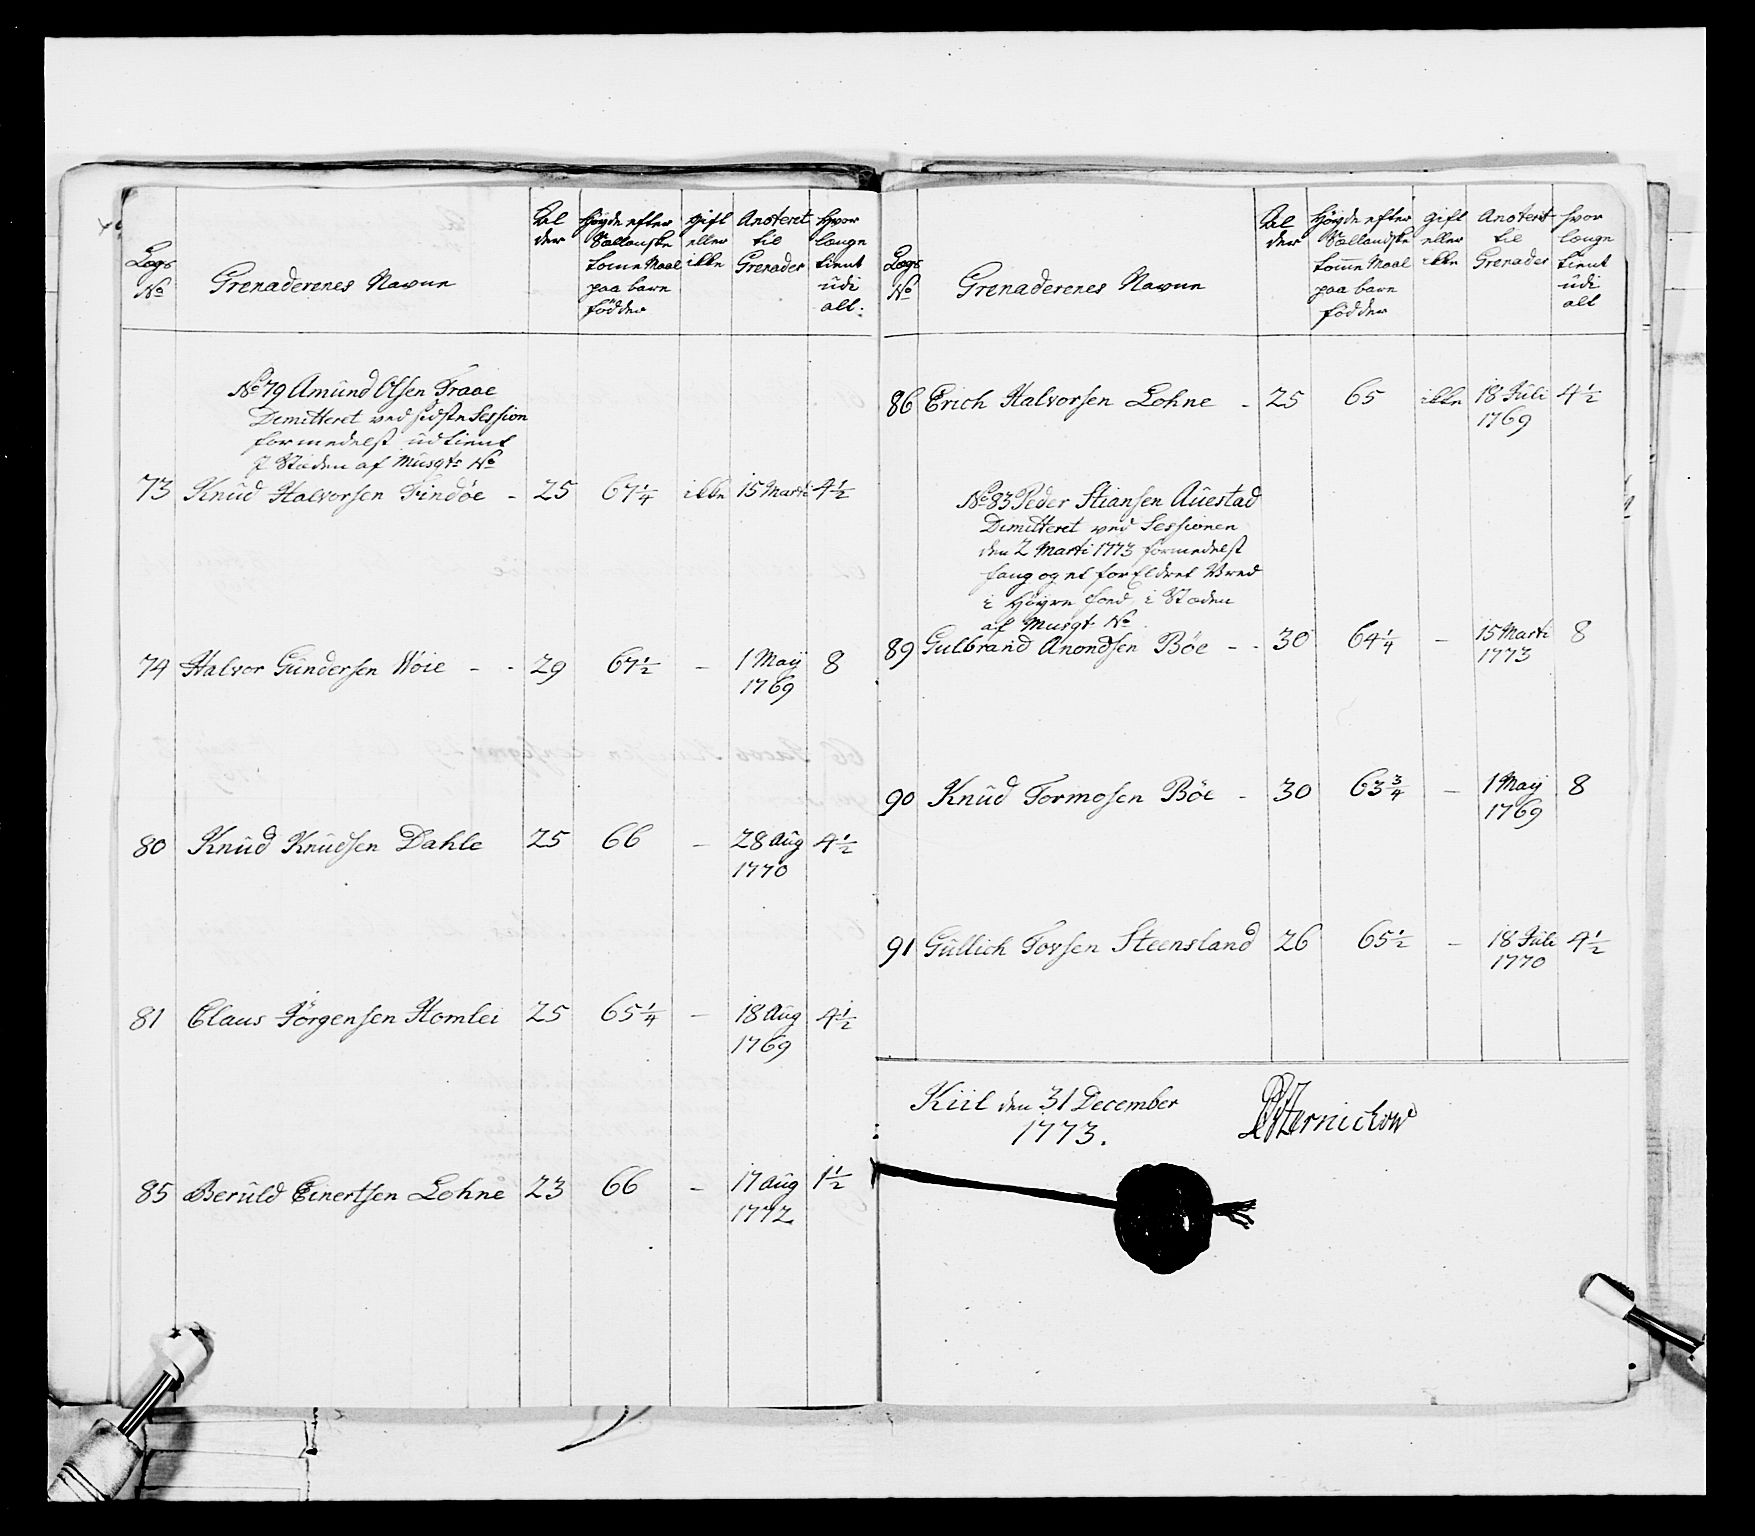 Lægs No
Grenaderenes Navne
Al
der
Høyde efter
Siællandske
tomme Maal
paa bare
födder
gift
eller
ikke
Anoteret
til
Grenader
Hvor
længe
tient
udi
alt.
No 79 Amund Olsen Traae
Demitteret ved sidste Session
formedelst udtient
J Stæden af Musqt: No
73 Knud Halvorsen Findöe - 25 67 1/4 ikke 15 Marti 4 1/2
74 Halvor Gundersen Wöie - - 29 67 1/2 - 1 Maÿ 8
1769
80 Knud Knudsen Dahle 25 66 - 28 Aug 4 1/2
1770
81 Claus Jörgensen Homlei 25 65 1/4 - 18 Aug 4 1/2
1769
85 Beruld Einertsen Lohne 23 66 - 17 Aug 1 1/2
1772
Lægs No
Grenaderenes Navne
Al
der
Høyde efter
Siællandske
tomme Maal
paa bare
födder
gift
eller
ikke
Anoteret
til
Grenader
hvor
længe
tient
udi
alt
86 Erich Halvorsen Lohne - 25 65 ikke 18 Juli 4 1/2
1769
No 83 Peder Stiansen Auestad
Demitteret ved Sessionen
den 2 Marti 1773 formedelst
og et forEldret Wred
i Høyre i Stæden
af Musqt: No
89 Gulbrand Anondsen Böe - - 30 64 1/4 - 15 Marti 8
1773
90 Knud Tormosen Böe - 30 63 3/4 - 1 Maÿ 8
1769
91 Gullich Torsen Steensland 26 65 1/2 - 18 Juli 4 1/2
1770
Kiil den 31 December
1773.